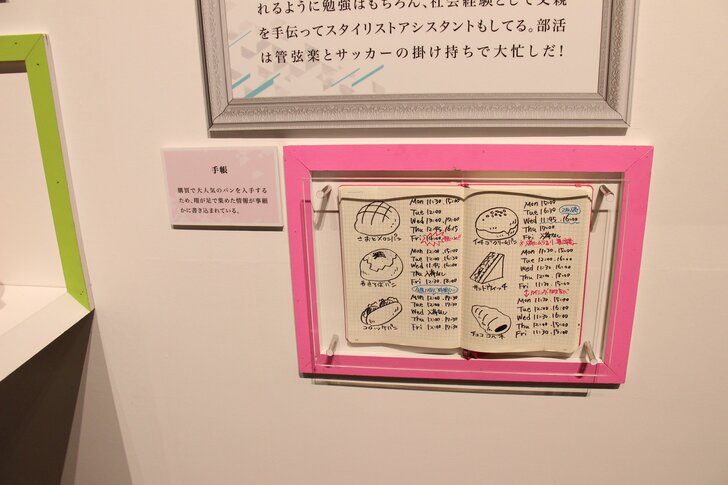 れるように勉強はもちろん、社会経験として父親
を手伝ってスタイリストアシスタントもしてる。部活
は管弦楽とサッカーの掛け持ちで大忙しだ!
手帳
購買で大人気のパンを入手する
ため、翔が足で集めた情報が事細
かに書き込まれている。
Mon 11:30. 15:00
Tue 12:00
Wed 13:00. 15:00
Thu 12:45. 16:15
Fri
さおとメロンパン
Mon 12:00. 15:00
Tue 12:00. 16:00
Wed 11:45. 16:00
Thu 入荷なし
Fri 12:30
やきそばパン
Mon 12:00. 17:30
Tue 12:00. 17:30
Wed 入荷なし
Thu 12:00. 17:30
Fri 12:00. 17:30
コロッケパン
Mon 15:00
Tue 16:30
Wed 11:45. 16:00
Thu 12:00. 15:00
Fri 入荷なし
Mon 12:00. 15:00
Tue 12:00. 16:00
Wed 11:30. 15:00
Thu 12:00. 16:00
Fri 11:30. 15:00
サンドウィッチ
Mon 11:30. 15:00
Tue 12:00. 15:00
Wed 11:30. 15:00
Thu 12:00. 15:00
Fri 11:30. 15:00
チョココロネ